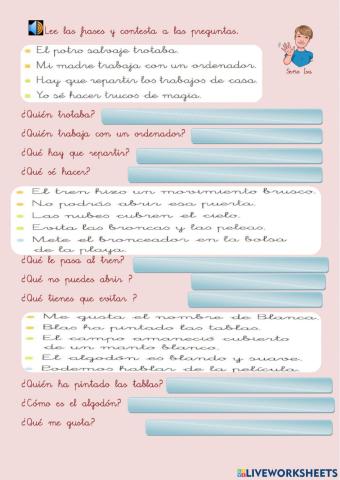 Lee las frases y contesta a las preguntas.
El potro salvaje trotaba.
Mi madre trabaja con un ordenador.
Hay que repartir los trabajos de casa.
Yo sé hacer trucos de magia.
Seño Isa
¿Quién trotaba?
¿Quién trabaja con un ordenador?
¿Qué hay que repartir?
¿Qué sé hacer?
El tren hizo un movimiento brusco.
No podrás abrir esa puerta.
Las nubes cubren el cielo.
Evita las broncas y las peleas.
Mete el bronceador en la bolsa
de la playa.
¿Qué le pasa al tren?
¿Qué no puedes abrir ?
¿Qué tienes que evitar ?
Me gusta el nombre de Blanca.
Blas ha pintado las tablas.
El campo amaneció cubierto
de un manto blanco.
El algodón es blando y suave.
Podemos hablar de la película.
¿Quién ha pintado las tablas?
¿Cómo es el algodón?
¿Qué me gusta?
LIVEWORKSHEETS